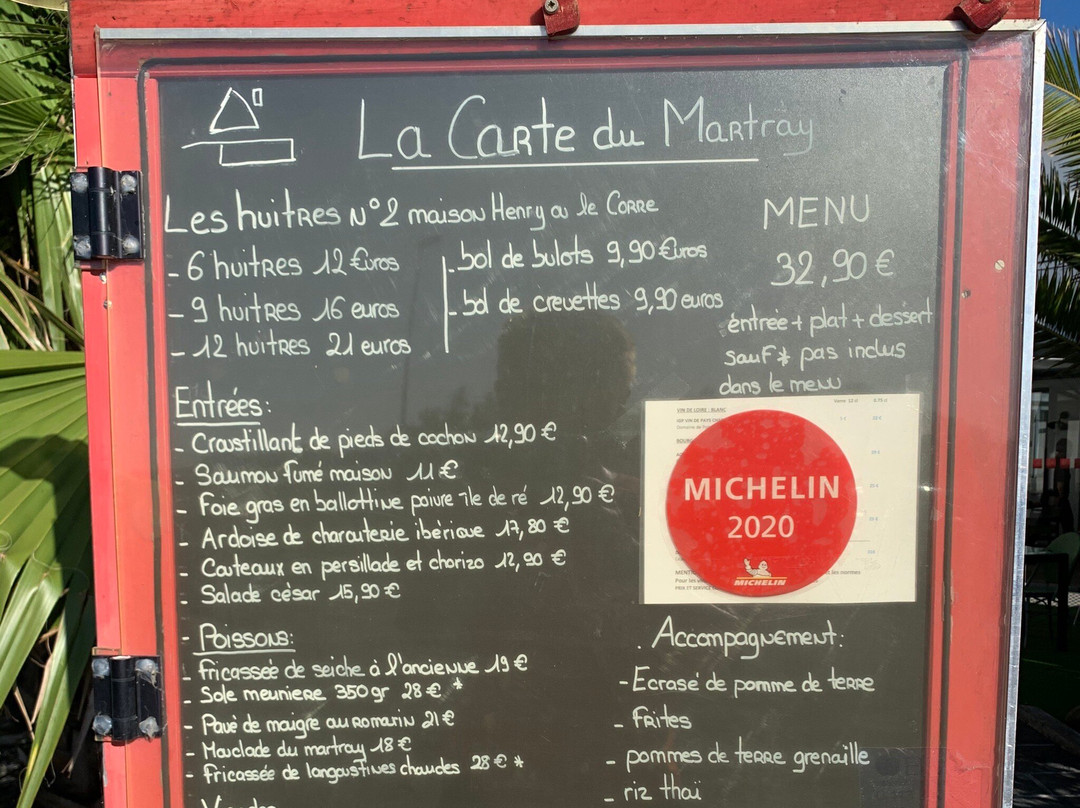 La Carte du Martray
Les huitres N°2 maison Henry ou le Corre
- 6 huitres 12 Euros
- 9 huitres 16 euros
- 12 huitres 21 euros
- bol de bulots 9,90 Euros
- bol de crevettes 9,90 euros
MENU
32,90 €
entrée + plat + dessert
sauf * pas inclus
dans le menu
Entrées:
- Croustillant de pieds de cochon 12,90 €
- Saumon fumé maison 11 €
- Foie gras en ballottine poivre île de ré 12,90 €
- Ardoise de charcuterie ibérique 17,80 €
- Couteaux en persillade et chorizo 12,90 €
- Salade césar 15,90 €
MICHELIN
2020
MICHELIN
VIN DE LOIRE : BLANC
- Poissons:
- fricassée de seiche à l'ancienne 19 €
- Sole meuniere 350 gr 28 € *
- Pavé de maigre au Romarin 21 €
- Mouclade du martray 18 €
- Fricassée de langoustines chaudes 28 € *
. Accompagnement:
- Ecrasé de pomme de terre
- frites
- pommes de terre grenaille
- riz thaï